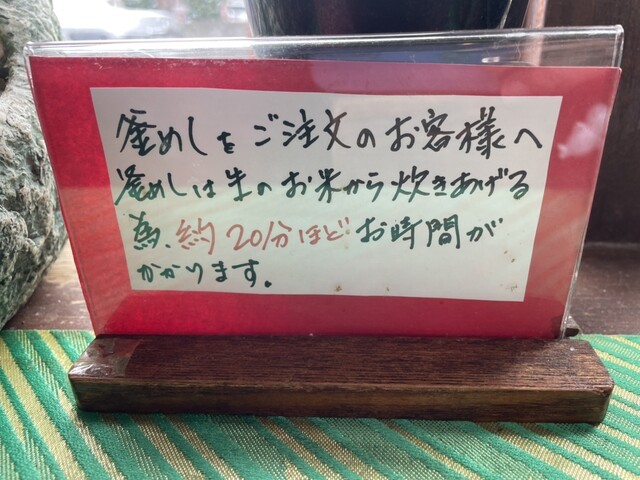 釜めしをご注文のお客様へ
釜めしは生のお米から炊きあげる
為、約20分ほどお時間が
かかります。